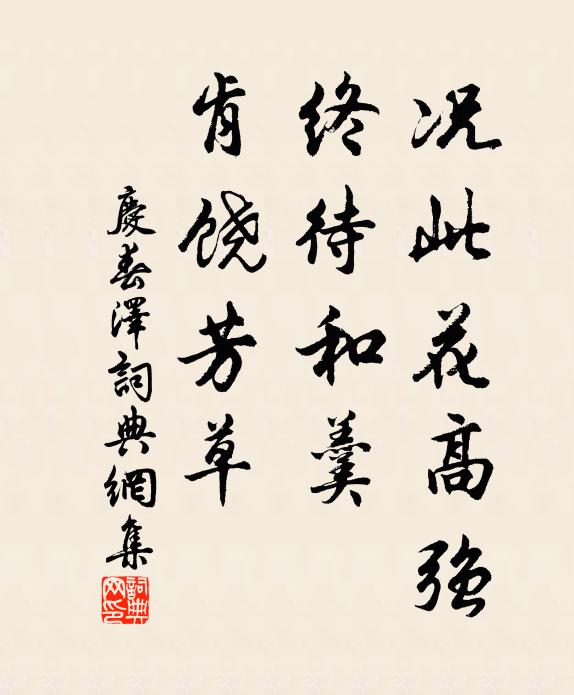 况此花高强
终待和羹
肯饶芳草
慶春澤詞典網集
詞典网印